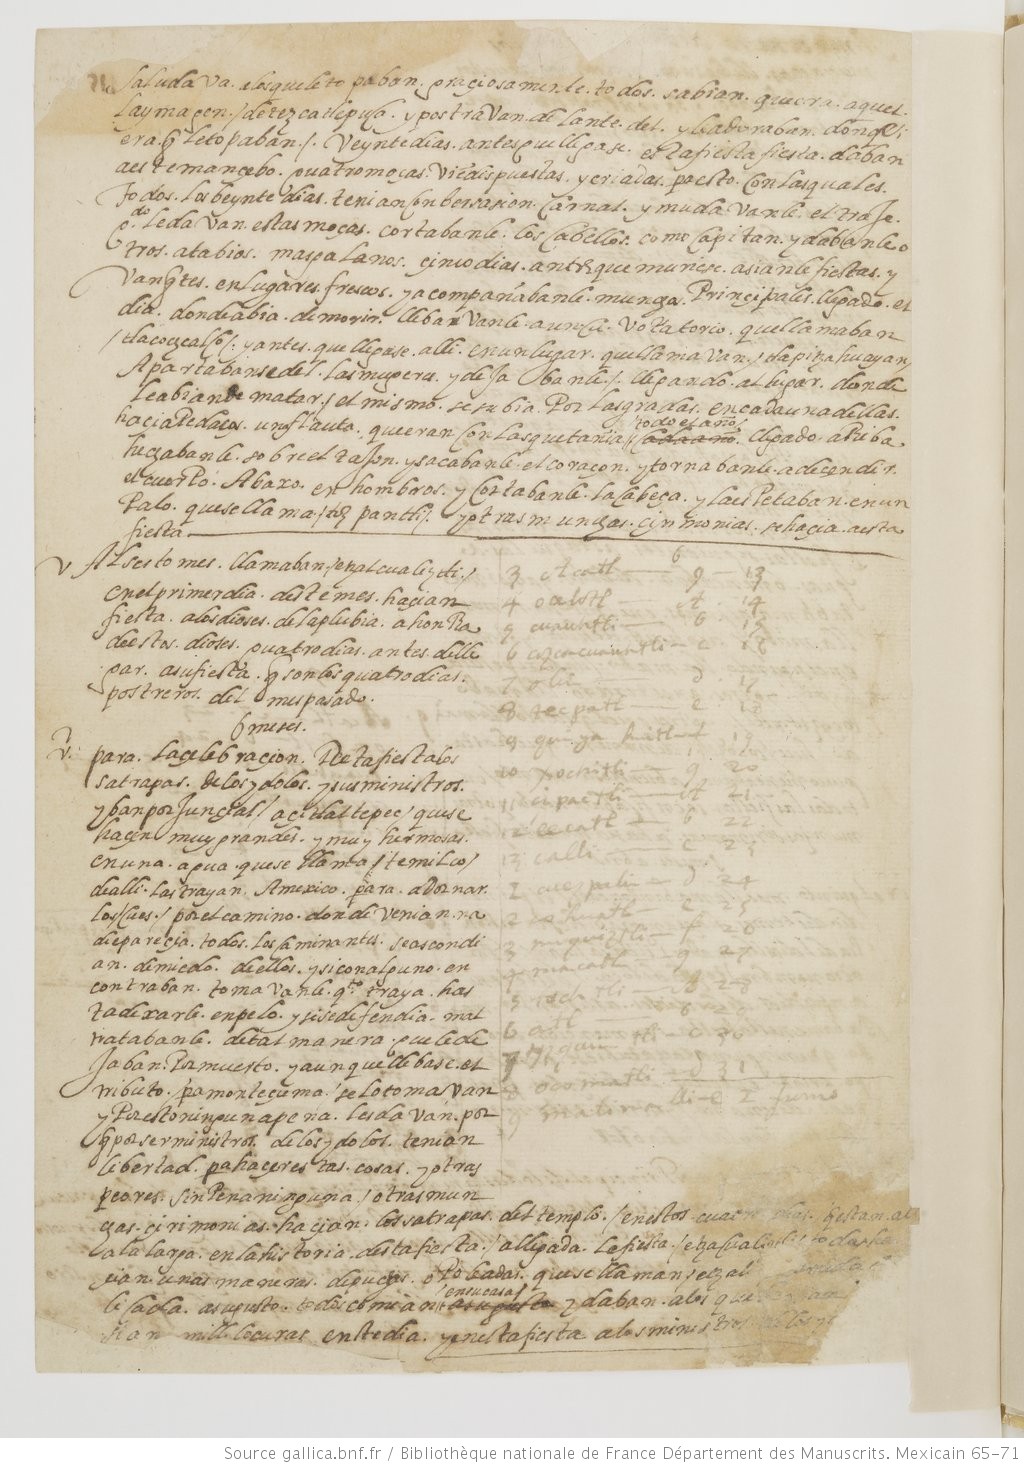 saludava. alosqueletopaban. graçiosamente. todos. sabian. queera. aquel.
laymagen. /detezcatlipuca. ypostravan. delante. del. yleadoraban. donq̄
era q̄ letopaban/. Veyntedias. antesquellegase. estafiestafiesta. daban
aestemancebo. quatromoças. biēdispuestas. ycriadas. paesto. Conlasquales.
todos. losbeyntedias. tenianconbersaçion. Carnal. ymudavanle. eltraJe.
qdo ledavan. estasmoças. cortabanle. loscabellos. comoCapitan. ydabanleo
tros. atabios. masgalanos. çincodias. antesquemuriese. asianlefiestas. y
vanq̄tes. enlugares. frescos. yacompañabanle. munchos. Prinçipales. llegado. el
dia. dondeabia. demorir. llebavanle. aun. Voratorio. quellamaban
/tlacoçcalco/. yantes. quellegase. alli. enunlugar. quellamavan. /tlapitzahuayan/
Apartabansedel. lasmugeres. ydeJabanle/. llegando. allugar. donde
leabiande matar/ elmismo. sesubia. Por lasgradas. encadaunadellas.
haciaPedaços. unaflauta. queeranConlasquetania/ todoelaño/. llegado. aRiba.
hechabanle. sobreeltaJon. ysacabanle. elcoraçon. ytornabanle. adeçendir.
elcuerPo. Abaxo. en hombros. yCortabanle. laCabeça. ylaesPetaban. enun
Palo. quesellama/tzōpantli/. yotrasmunchas. çirimonias. sehaçia. aesta
fiesta.
v Alsestomes. llamaban/etzalcualiztli/
enelprimerdia. destemes. haçian
fiesta. alosdioses. delaplubia. ahonRa
deestos. dioses. quatrodias. antes. delle
gar. asufiesta. q̄ sonlosquatrodias.
postreros. del mespasado.
6 meses.
v. para. laçelebraçion. Destafiestalos
satrapas. delosydolos. ysusministros
ybanporJunçias/ açitlaltepec/ quese
haçen muygrandes. ymuyhermosas.
enuna. agua. quese llama/temilco/
dealli. lastrayan. Amexico. para. adornar.
loscues./ porelcamino. dondeveniannа
diepareçia. todos. losCaminantes. seascondi
an. demiedo. deellos. ysiconalguno. en
contraban. tomavanle. qto traya. has
tadexarle. enpelo. ysisedefendia. mal
tratabanle. detalmanera. quelede
Jaban. Pormuerto. yaunquellebase. el
tributo. paramonteçuma. /selotomavan
yPorestoningunapena. lesdavan. por
q̄porserministros. delosydolos. tenian
libertad. pahaçerestas. cosas. yotras
peores. sinPenaninguna/ otrasmun
chas. çirimonias. haçian. lossatrapas. deltemplo. /enestos.
alalarga. enlahistoria. destafiesta./ allegada. lafiesta. /etzalcualiztli/ todas
çian. unasmaneras. depuchas. oPoleadas. quesellaman/etzalli
lisada. asugusto. todoscomian ensucasas/ ydaban. alos que
sian mill locuras enstedia. yenestafiesta alosministros
3 Acatl — g — 13
4 ocelotl — A — 14
5 cuauhtli — b — 15
6 cozcacuauhtli — c — 16
7 olin — d — 17
8 tecpatl — e — 18
9 quiyahuitl — f — 19
10 xochitl — g — 20
11 cipactli — A — 21
12 eecatl — b — 22
13 calli — c — 23
1 cuezpalin — d — 24
2 cohuatl — e — 25
3 miquiztli — f — 26
4 macatl — g — 27
5 tochtli — A — 28
6 atl — b — 29
7 — c — 30
8 ocomatli — d — 31
9 malinalli — e — 2 Junio